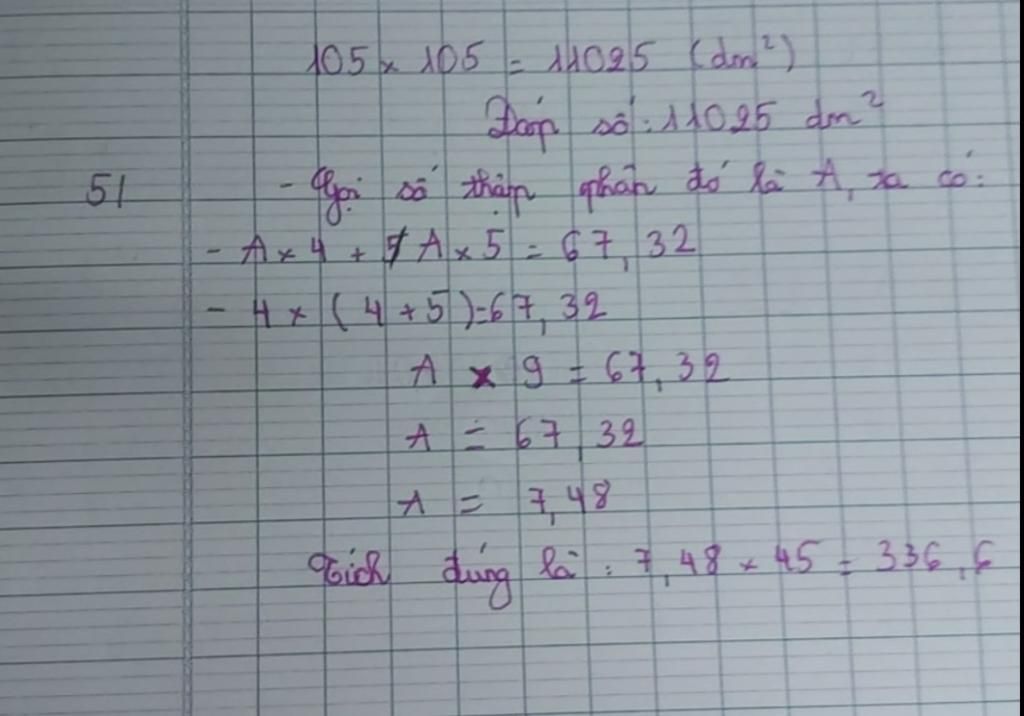 105 x 105 = 11025 (dm²)
Đáp số: 11025 dm²
51 - Gọi số thập phân đó là A, ta có:
- A x 4 + A x 5 = 67,32
- A x (4 + 5) = 67,32
A x 9 = 67,32
A = 67,32
A = 7,48
Tích đúng là: 7,48 x 45 = 336,6